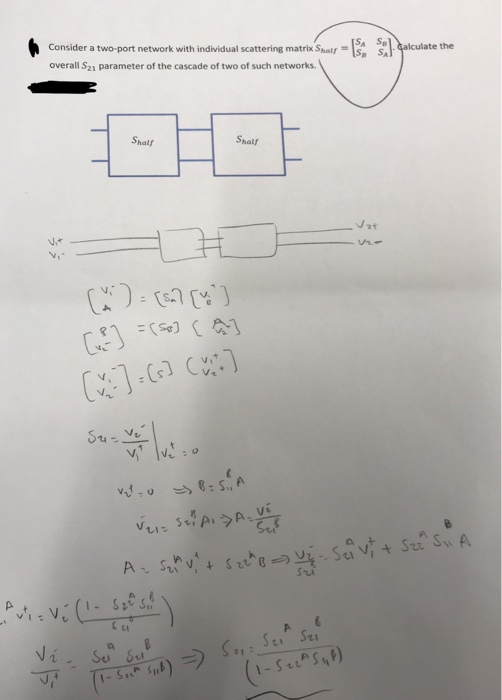 Consider a two-port network with individual scattering matrix S_half = [S_A S_B; S_B S_A]. Calculate the
overall S₂₁ parameter of the cascade of two of such networks.
S_half S_half
V₁⁺ V₂⁺
V₁⁻ V₂⁻
[V₁⁻ A] = [S_A] [V₁⁺ B]
[B V₂⁻] = [S_B] [A V₂⁺]
[V₁⁻ V₂⁻] = [S] [V₁⁺ V₂⁺]
S₂₁ = V₂⁻/V₁⁺ | V₂⁺ = 0
V₂⁺ = 0 ⇒ B = S₁₁ᴮ A
A = V₂⁻/S₂₁ᴮ
A = S₂₁ᴬ V₁⁺ + S₂₂ᴬ B ⇒ V₂⁻/S₂₁ᴮ = S₂₁ᴬ V₁⁺ + S₂₂ᴬ S₁₁ᴮ A
ᴬ V₁⁺ = V₂⁻ (1 - S₂₂ᴬ S₁₁ᴮ / S₂₁ᴮ)
V₂⁻/V₁⁺ = S₂₁ᴬ S₂₁ᴮ / (1 - S₂₂ᴬ S₁₁ᴮ) ⇒ S₂₁ = S₂₁ᴬ S₂₁ᴮ / (1 - S₂₂ᴬ S₁₁ᴮ)